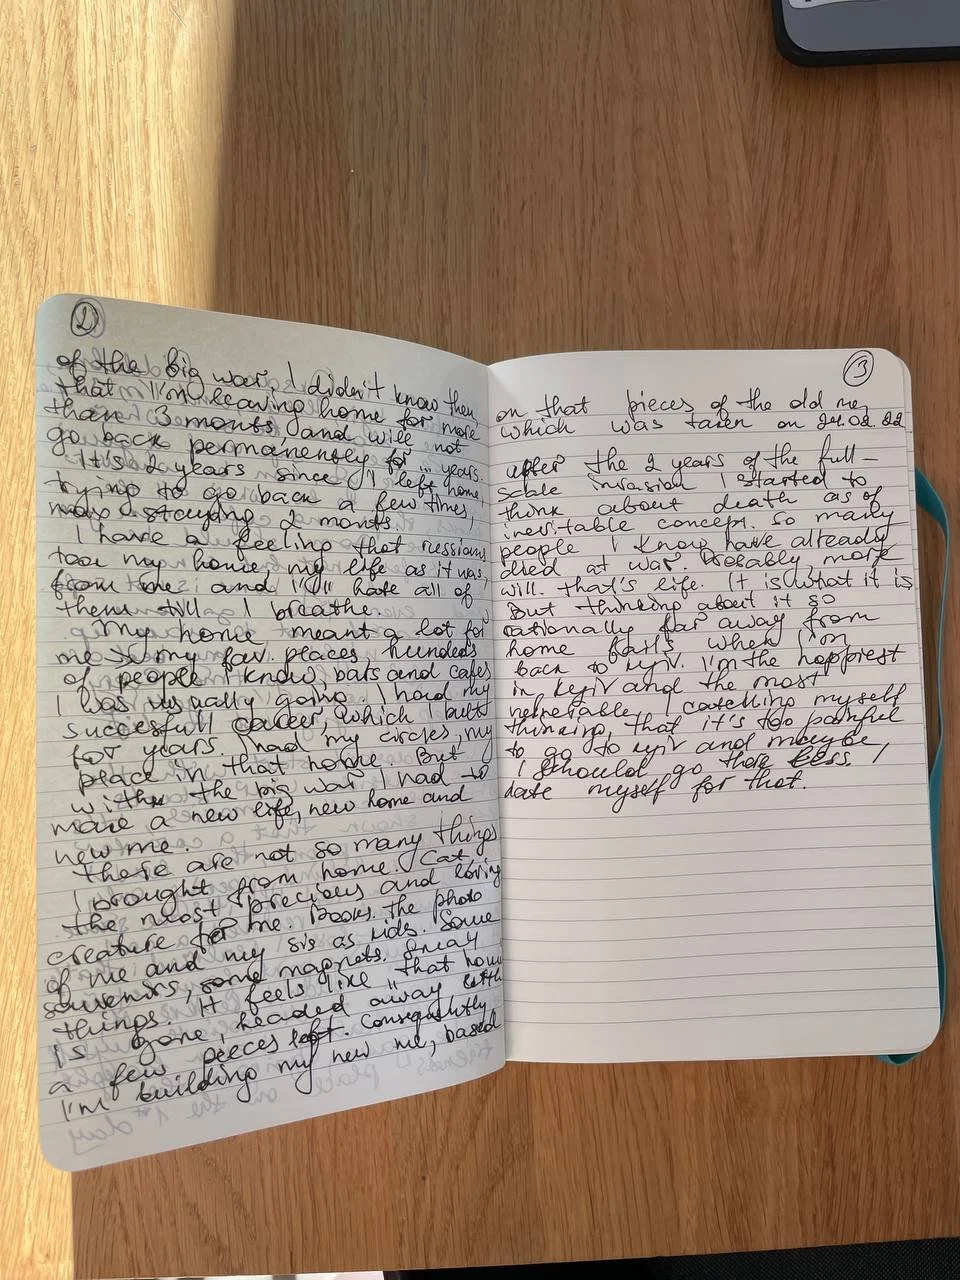 2
of the big war. I didn't know then
that I'm leaving home for more
than 3 monts, and will not
go back permanently for ... years.
It's 2 years since I left home,
trying to go back a few times,
max staying 2 monts.
I have a feeling that russians
took my home, my life as it was,
from me; and I'll hate all of
them till I breathe.
My home meant a lot for
me my fav. places hundreds
of people I know, bars and cafes
I was usually going. I had my
successfull career, which I built
for years. I had my circles, my
peace in that home. But
with the big war I had to
make a new life, new home and
new me.
There are not so many things
I brought from home. Cat,
the most precious and loving
creature for me. Books. The photo
of me and my sis as kids. Some
souvenirs, some magnets. Small
things. It feels like "that home
is gone, headed away with
a few pieces left. Consequently
I'm building my new me, based
3
on that pieces of the old me,
which was taken on 24.02.22
After the 2 years of the full-
scale invasion I started to
think about death as of
inevitable concept. So many
people I know have already
died at war. Probably, more
will. That's life. It is what it is
But thinking about it so
rationally far away from
home fails when I'm
back to kyiv. I'm the happiest
in kyiv and the most
I catching myself
thinking, that it's too painful
to go to kyiv and maybe,
I should go there less. I
hate myself for that.